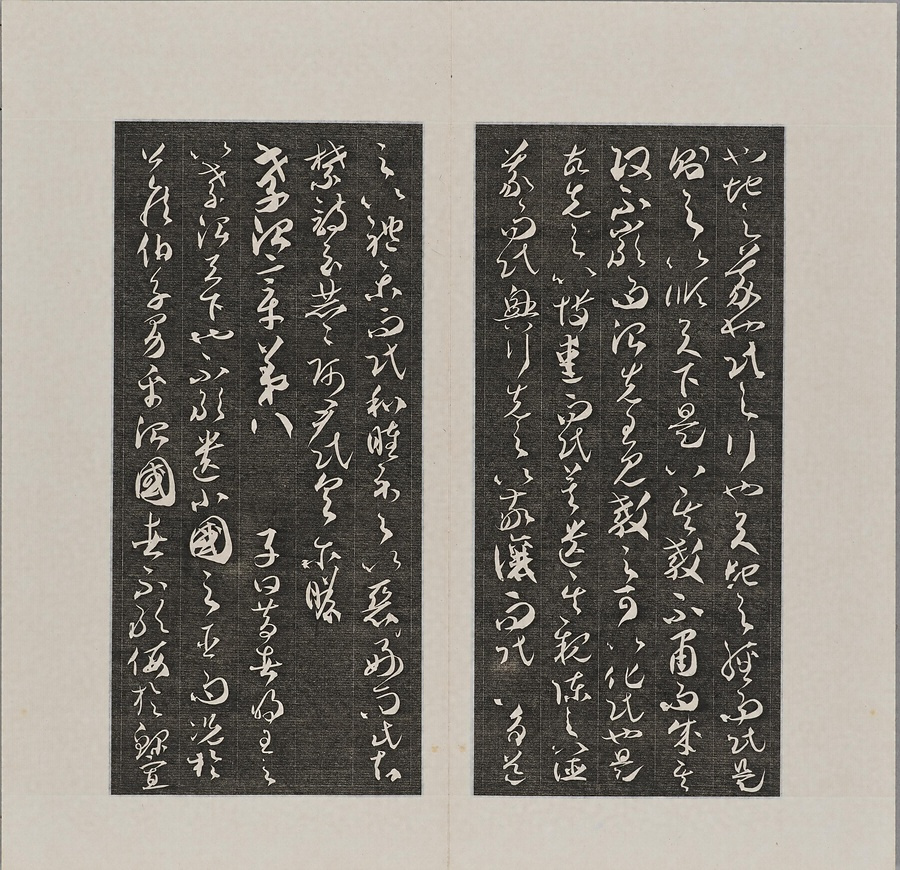 也地之義也民之行也天地之經而民是
則之以順天下是以其教不肅而成其
政不嚴而治先王見教之可以化民也是
故先之以博愛而民莫遺其親陳之以德
義而民興行先之以敬讓而民不爭道
之以禮樂而民和睦示之以惡好而民知
禁詩云赫赫師尹民具爾瞻
孝治章第八 子曰昔者明王之
以孝治天下也不敢遺小國之臣而況於
公侯伯子男乎治國者不敢侮於鰥寡